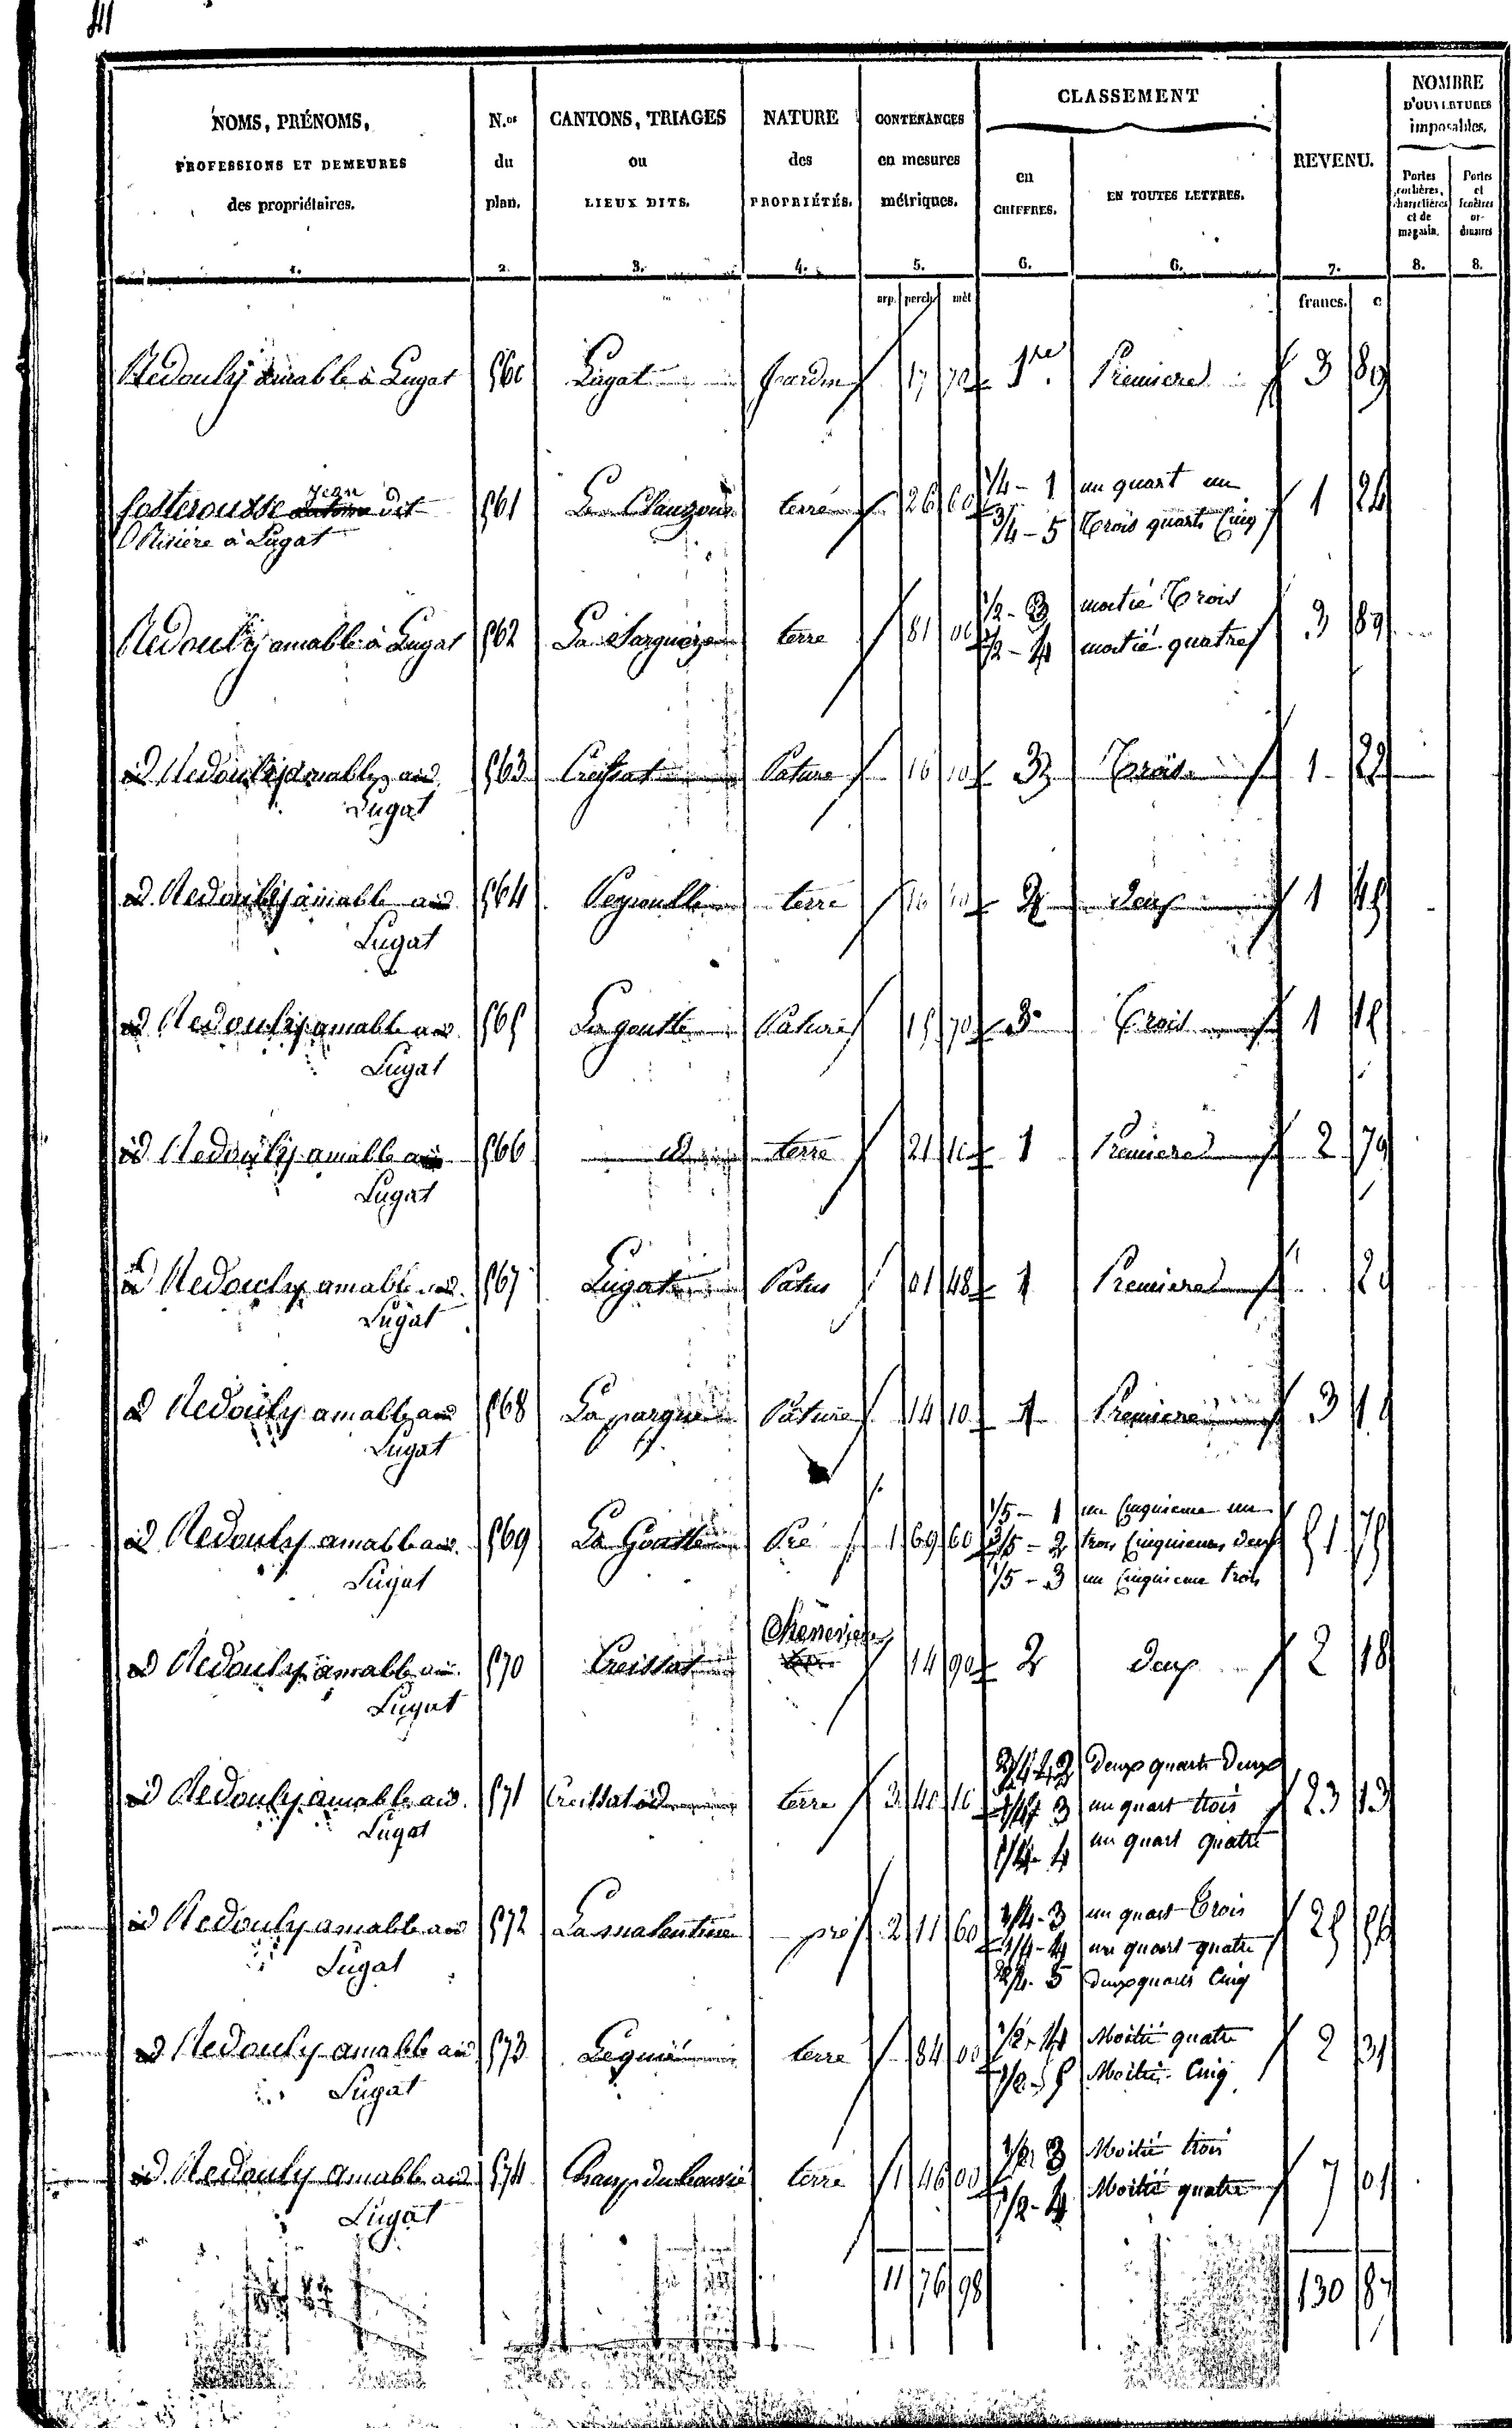 41
NOMS, PRÉNOMS,
PROFESSIONS ET DEMEURES
des propriétaires.
1.
N.os
du
plan.
2.
CANTONS, TRIAGES
ou
LIEUX DITS.
3.
NATURE
des
PROPRIÉTÉS.
4.
CONTENANCES
en mesures
métriques.
5.
CLASSEMENT
en
CHIFFRES.
6.
EN TOUTES LETTRES.
6.
REVENU.
7.
NOMBRE
D'OUVERTURES
imposables.
Portes
cochères,
charretières
et de
magasin.
8.
Portes
et
fenêtres
or-
dinaires
8.
arp. perch. mèt francs. c
Redouly amable à Lugat 560 Lugat Jardin 17 70 1re Premiere 3 89
Costerousse Jean dit 561 terre 26 60 1/4 - 1 un quart un 1 24
à Lugat 3/4 - 5 Trois quarts Cinq
Redouly amable à Lugat 562 terre 81 00 1/2 - 3 moitié Trois 3 89
1/2 - 4 moitié quatre
id Redouly amable aud 563 Creissat Pature 16 10 3 Trois 1 22
Lugat
id Redouly amable aud 564 Peyroulle terre 16 10 2 deux 1 45
Lugat
id Redouly amable aud 565 La goutte Pature 15 70 3 Trois 1 18
Lugat
id Redouly amable aud 566 id terre 21 10 1 Premiere 2 79
Lugat
id Redouly amable aud 567 Lugat Patus 01 48 1 Premiere 20
Lugat
id Redouly amable aud 568 La pargue Pature 14 10 1 Premiere 3 10
Lugat
id Redouly amable aud 569 La Goutte Pré 1 69 60 1/5 - 1 un Cinquieme un 51 75
3/5 - 2 trois Cinquiemes deux
Lugat 1/5 - 3 un Cinquieme trois
id Redouly amable aud 570 Creissat Cheneviere 14 90 2 deux 2 18
Lugat
id Redouly amable aud 571 Creissat id terre 3 40 10 2/4 - 2 deux quarts deux 23 13
1/4 - 3 un quart trois
Lugat 1/4 - 4 un quart quatre
id Redouly amable aud 572 La malentine pré 2 11 60 1/4 - 3 un quart Trois 25 56
1/4 - 4 un quart quatre
Lugat 2/4 - 5 deux quarts Cinq
id Redouly amable aud 573 terre 84 00 1/2 - 4 Moitié quatre 2 31
Lugat 1/2 - 5 Moitié Cinq
id Redouly amable aud 574 terre 1 46 00 1/2 - 3 Moitié trois 7 01
Lugat 1/2 - 4 Moitié quatre
11 76 98 130 87